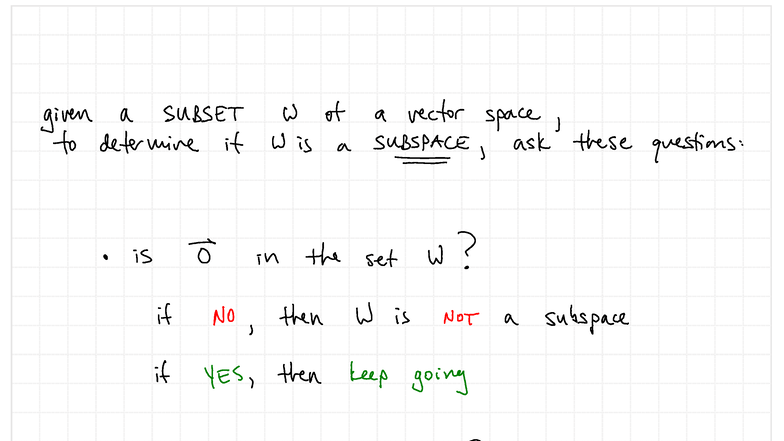 given a SUBSET W of a vector space,
to determine if W is a SUBSPACE, ask these questions:
• is 0⃗ in the set W?
if NO, then W is NOT a subspace
if YES, then keep going